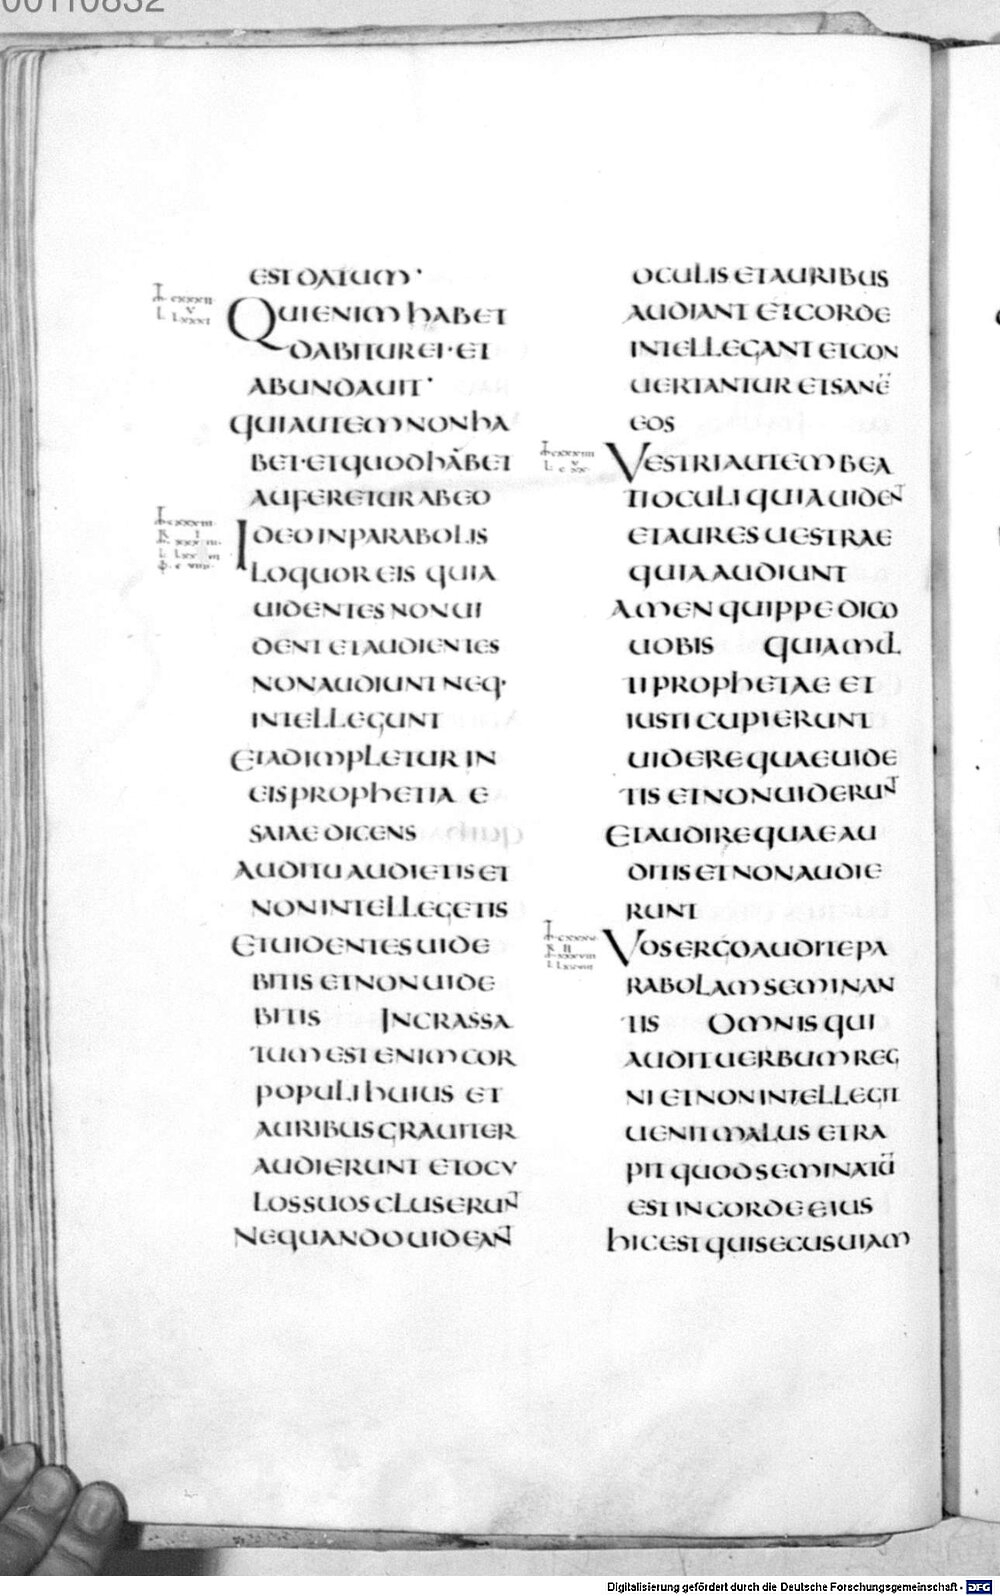 00110832
EST DATUM·
QUI ENIM HABET
DABITUR EI· ET
ABUNDAVIT·
QUI AUTEM NON HA
BET· ET QUOD HABET
AUFERETUR AB EO
IDEO IN PARABOLIS
LOQUOR EIS QUIA
UIDENTES NON UI
DENT ET AUDIENTES
NON AUDIUNT NEQ·
INTELLEGUNT
ET ADIMPLETUR IN
EIS PROPHETIA E
SAIAE DICENS
AUDITU AUDIETIS ET
NON INTELLEGETIS
ET UIDENTES UIDE
BITIS ET NON UIDE
BITIS INCRASSA
TUM EST ENIM COR
POPULI HUIUS ET
AURIBUS GRAUITER
AUDIERUNT ET OCV
LOS SUOS CLUSERUNT
NEQUANDO UIDEANT
OCULIS ET AURIBUS
AUDIANT ET CORDE
INTELLEGANT ET CON
UERTANTUR ET SANE
EOS
VESTRI AUTEM BEA
TI OCULI QUIA UIDENT
ET AURES UESTRAE
QUIA AUDIUNT
AMEN QUIPPE DICO
UOBIS QUIA MUL
TI PROPHETAE ET
IUSTI CUPIERUNT
UIDERE QUAE UIDE
TIS ET NON UIDERUNT
ET AUDIRE QUAE AU
DITIS ET NON AUDIE
RUNT
VOS ERGO AUDITE PA
RABOLAM SEMINAN
TIS OMNIS QUI
AUDIT UERBUM REG
NI ET NON INTELLEGIT
UENIT MALUS ET RA
PIT QUOD SEMINATU
EST IN CORDE EIUS
HIC EST QUI SECUS UIAM
Digitalisierung gefördert durch die Deutsche Forschungsgemeinschaft - DFG